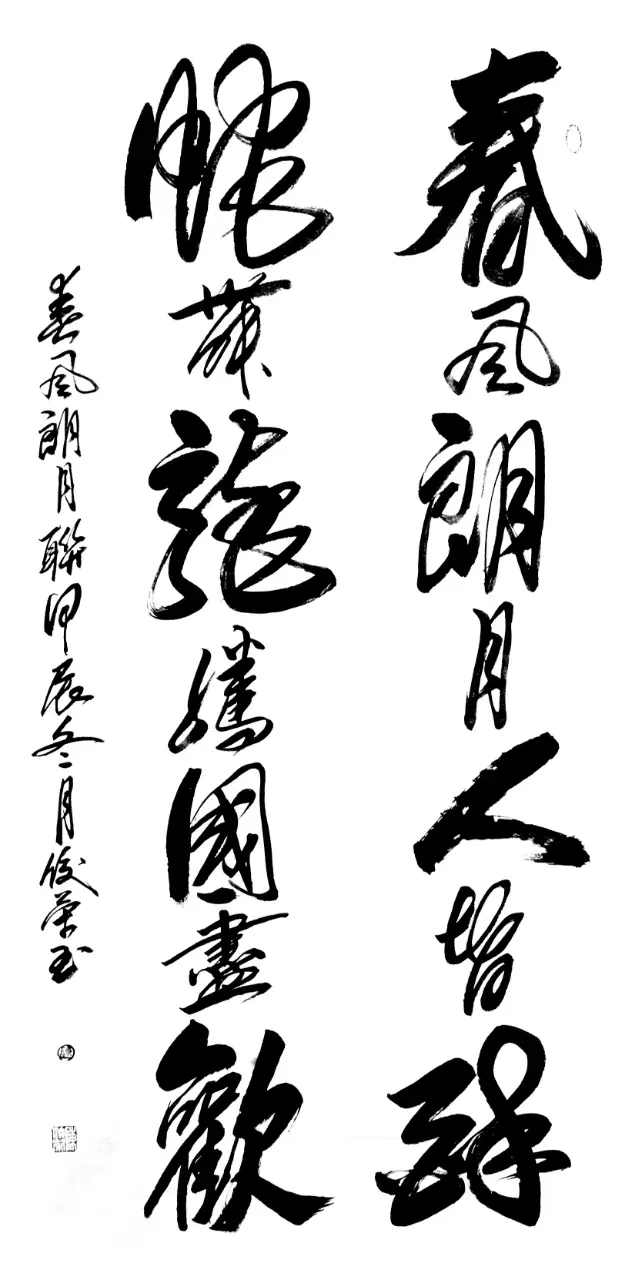 春風朗月人皆醉
蛇舞龍騰國盡歡
春風朗月聯甲辰冬月俊榮書